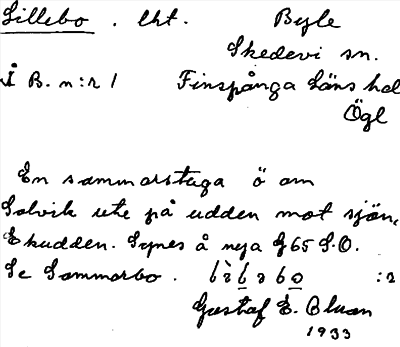 Lillebo. lht. Byle
Skedevi sn.
Å B. n:r 1 Finspånga läns hd
Ögl
En sommarstuga ö om
Solvik ute på udden mot sjön,
Ekudden. Synes å nya G65 S.O.
Se Sommarbo. :2
Gustaf E. Bluan
1933